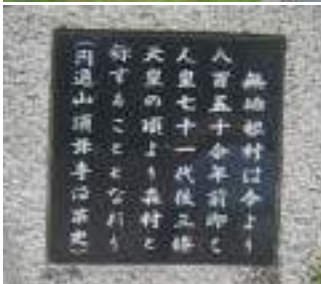 無地租村は今より
八百五十余年前即ち
人皇七十一代後三條
天皇の頃より森村と
称することとなれり
(円通山頂禅寺沿革史)